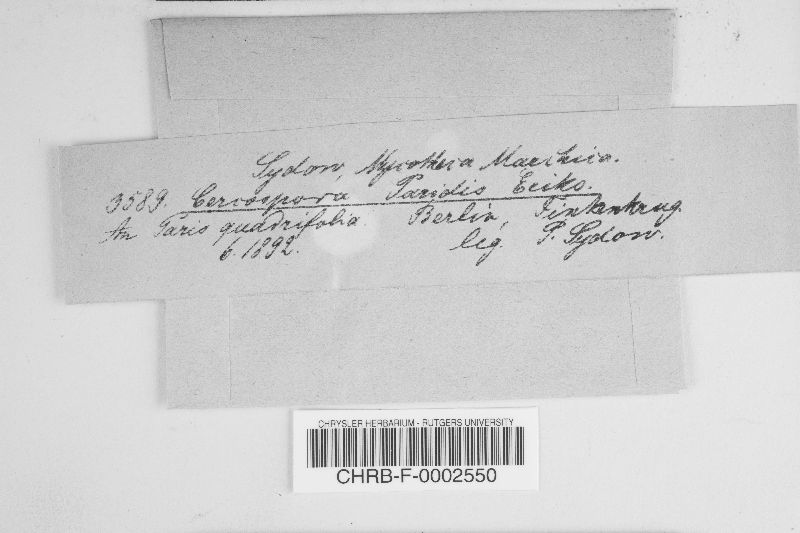 Sydow, Mycotheca Marchica.
3589. Cercospora Paridis Eriks.
An Paris quadrifolia. Berlin, Finkenkrug
6. 1892. leg. P. Sydow.
CHRYSLER HERBARIUM - RUTGERS UNIVERSITY
CHRB-F-0002550